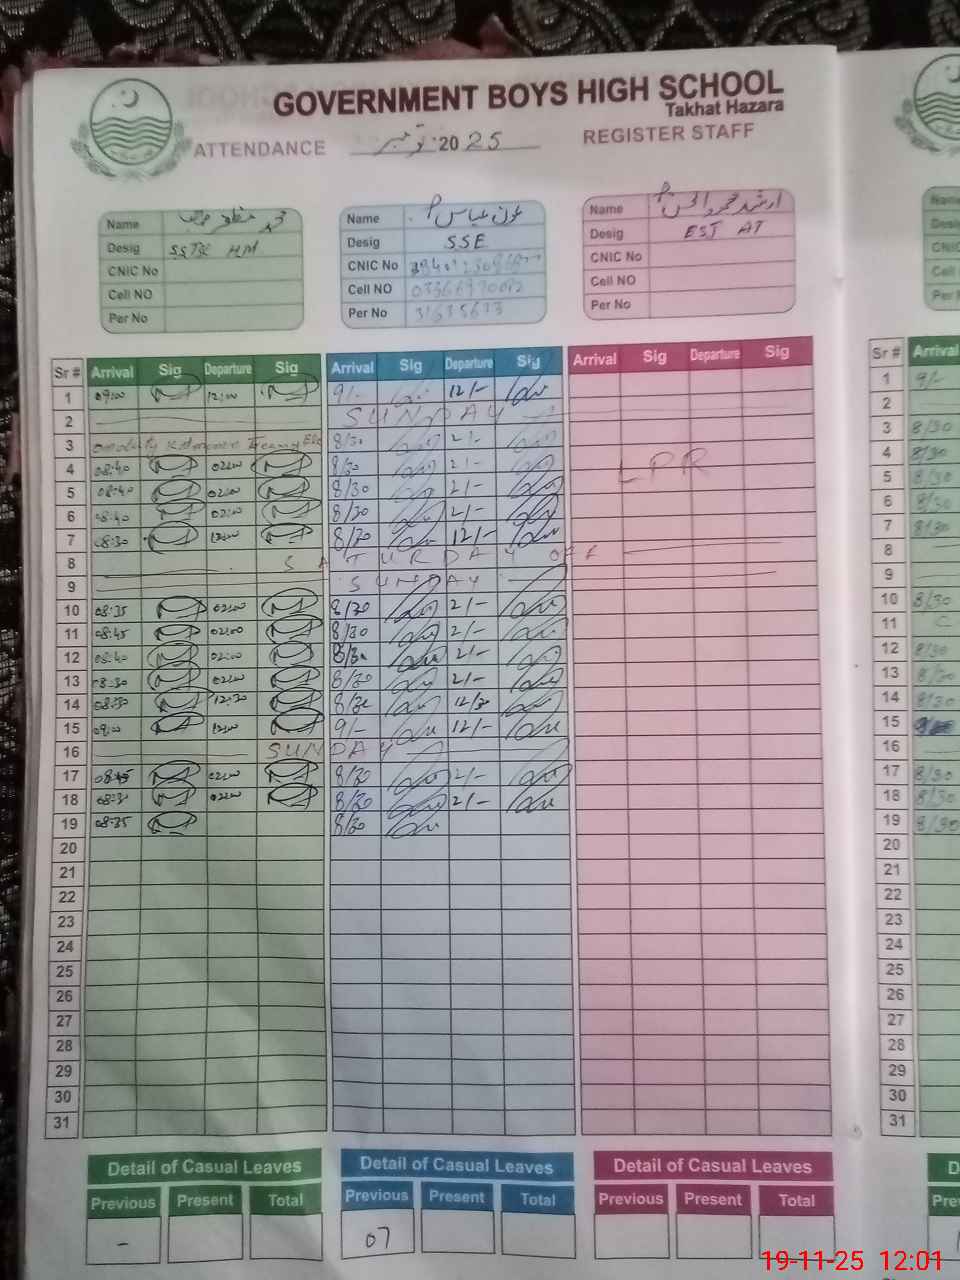 GOVERNMENT BOYS HIGH SCHOOL
Takhat Hazara
ATTENDANCE نومبر 2025 REGISTER STAFF
Name محمد منظور
Desig HM
CNIC No
Cell NO
Per No
Name عون عباس
Desig SSE
CNIC No
Cell NO
Per No
Name ارشد محمود
Desig EST AT
CNIC No
Cell NO
Per No
Sr # Arrival Sig Departure Sig Arrival Sig Departure Sig Arrival Sig Departure Sig Sr # Arrival
1 09:00 12:00 9/- 12/- 1 9/-
2 SUNDAY 2
3 8/30 2/- 3 8/30
4 08:40 02:00 8/30 2/- LPR 4 8/30
5 08:40 02:00 8/30 2/- 5 8/30
6 08:40 02:00 8/30 2/- 6 8/30
7 08:30 12:00 8/30 12/- 7 8/30
8 SATURDAY OFF 8
9 SUNDAY 9
10 08:35 02:00 8/30 2/- 10 8/30
11 08:45 02:00 8/30 2/- 11
12 08:40 02:00 8/30 2/- 12 8/30
13 08:30 02:00 8/30 2/- 13 8/30
14 08:30 12:30 8/30 12/30 14 8/30
15 09:00 12:00 9/- 12/- 15
16 SUNDAY 16
17 08:45 02:00 8/30 2/- 17 8/30
18 08:30 02:00 8/30 2/- 18 8/30
19 08:35 8/30 19 8/30
20 20
21 21
22 22
23 23
24 24
25 25
26 26
27 27
28 28
29 29
30 30
31 31
Detail of Casual Leaves Detail of Casual Leaves Detail of Casual Leaves
Previous Present Total Previous Present Total Previous Present Total
- 07
19-11-25 12:01